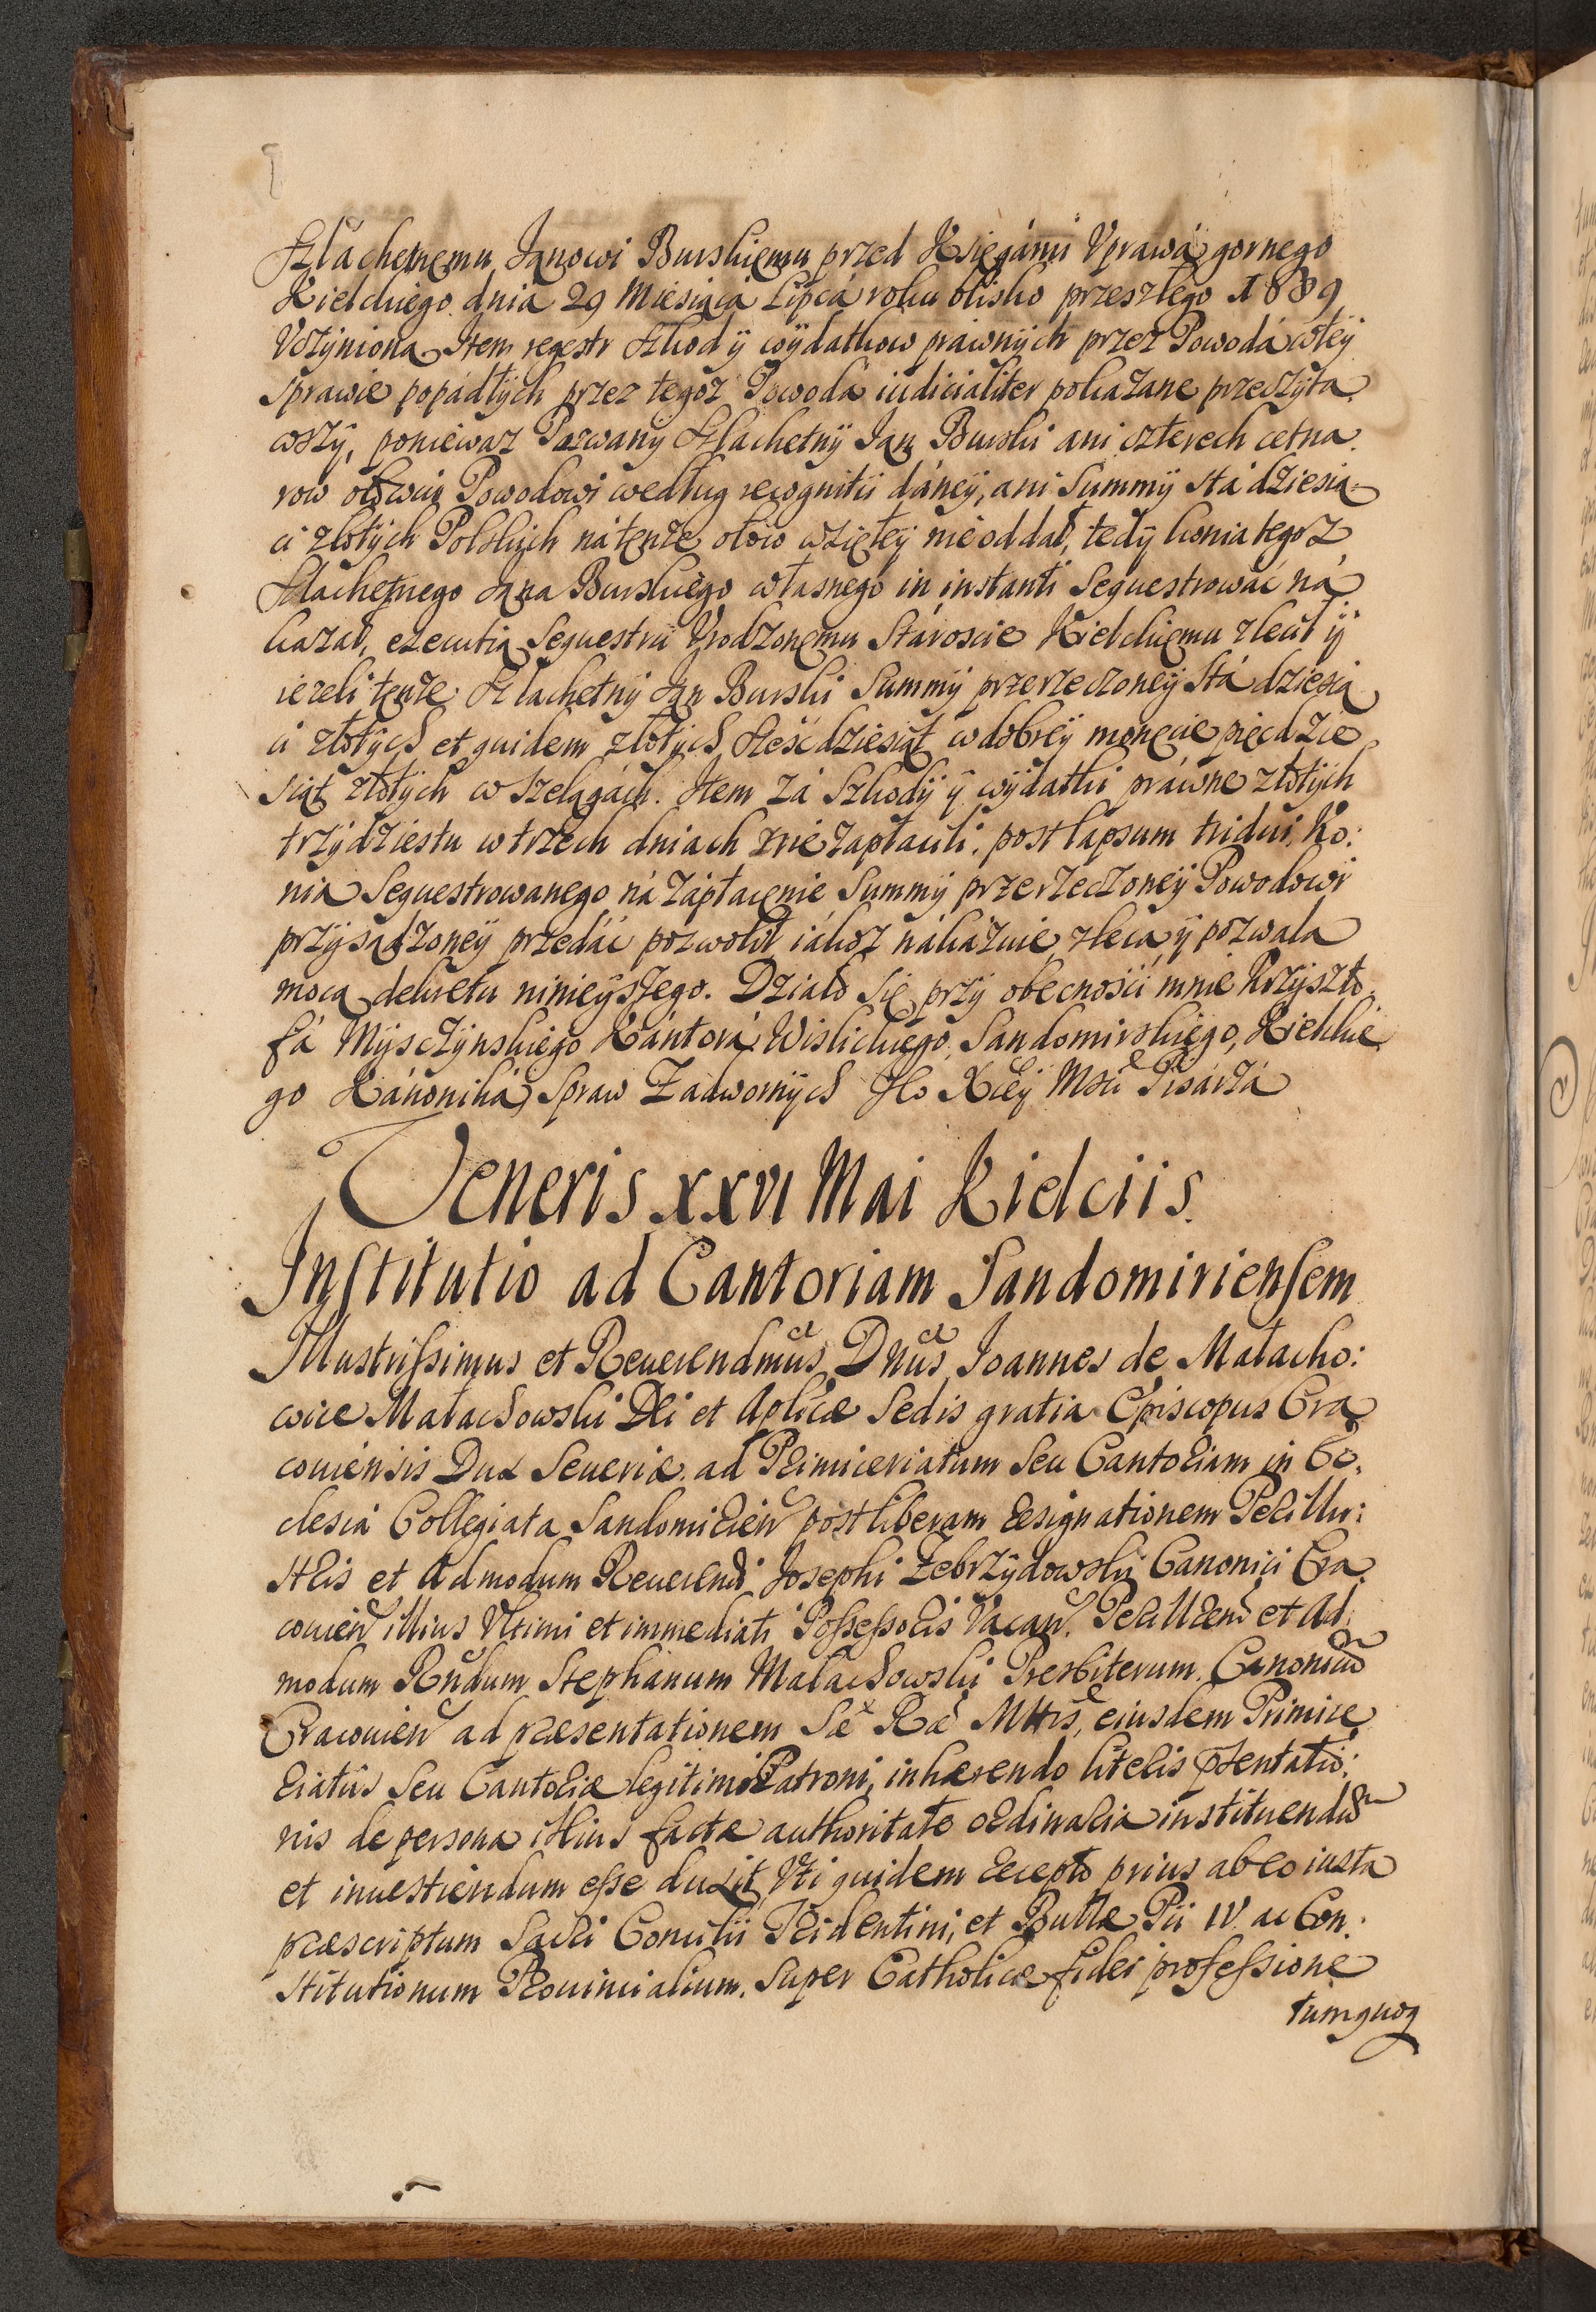 Szláchetnemu Janowi Burskiemu przed Xięgámi Vprawá gornego
Kielckiego dniá 29 Miesiącá Lipcá roku blisko przeszłego 1689
Vczyniona, Item regestr szkod ÿ wÿdatkow práwnÿch przez Powodá wteÿ
sprawie popádłÿch przez tegoż Powodá iudicialiter pokazane przeczÿta„
wszÿ, poniewaz Pozwanÿ Szlachetnÿ Jan Burski ani czterech cetna„
row ołowiu Powodowi według recognitÿ dáneÿ, ani Summÿ stá dziesią„
ci złotÿch Polskich ná tenże ołow wzięteÿ nie oddał, tedÿ konia tegoż
Szlachetnego Jana Burskiego własnego in instanti Sequestrowáć ná„
kazał, executią Sequestru Vrodzonemu Stároscie Kielckiemu zlecił ÿ
iezeli tenże Szlachetnÿ Jan Burski Summÿ przerzeczoneÿ stá dziesią„
ci złotÿch et quidem złotÿch sześćdziesiąt w dobreÿ monecie pięcdzie„
siąt złotÿch w szelągách. Item zá Szkodÿ ÿ wÿdatki práwne złotÿch
trzÿdziestu w trzech dniach nie zapłacili, post lapsum tridui, Ko:
nia Sequestrowanego ná zápłacenie Summÿ przerzeczoneÿ Powodowi
przÿsądzoneÿ przedáć pozwolił iákoż nákázuie, zleca ÿ pozwala
mocą dekretu ninieÿszego. Działo się przÿ obecnosći mnie Krzÿszto„
fá Mÿsczÿnskiego Kántorá Wislickiego, Sandomirskiego, Kielckie„
go Kánoniká, Spraw Zadwornÿch Jo Xcieÿ Msći Pisárzá
Veneris XXVI Mai Kielciis.
Institutio ad Cantoriam Sandomiriensem
Illustrissimus et Reuerendmus Dnus Joannes de Małacho:
wice Małachowski Dei et Aplicæ Sedis gratia Episcopus Cra„
couiensis Dux Seueriæ. ad Primiceriatum seu Cantoriam in Ec„
clesia Collegiata Sandomirien post liberam resignationem Perillu:
stris et Admodum Reuerendi Josephi Zebrzÿdowski Canonici Cra„
couien illius Vltimi et immediati Possessoris Vacan. Perillrem et Ad„
modum Rndum Stephanum Małachowski Presbiterum Canonicu
Cracouien ad præsentationem Sæ Ræ Mttis, eiusdem Primice„
riatus seu Cantoriæ legitimi Patroni, inhærendo literis pntentatio:
nis de persona illius factæ authoritate ordinaria instituendu
et inuestiendum esse duxit, Vti quidem recepto prius ab eo iuxta
præscriptum Sacri Concilii Tridentini, et Bullæ Pii IV. ac Con„
stitutionum Prouincialium. super Catholicæ fidei professione
tum quoq